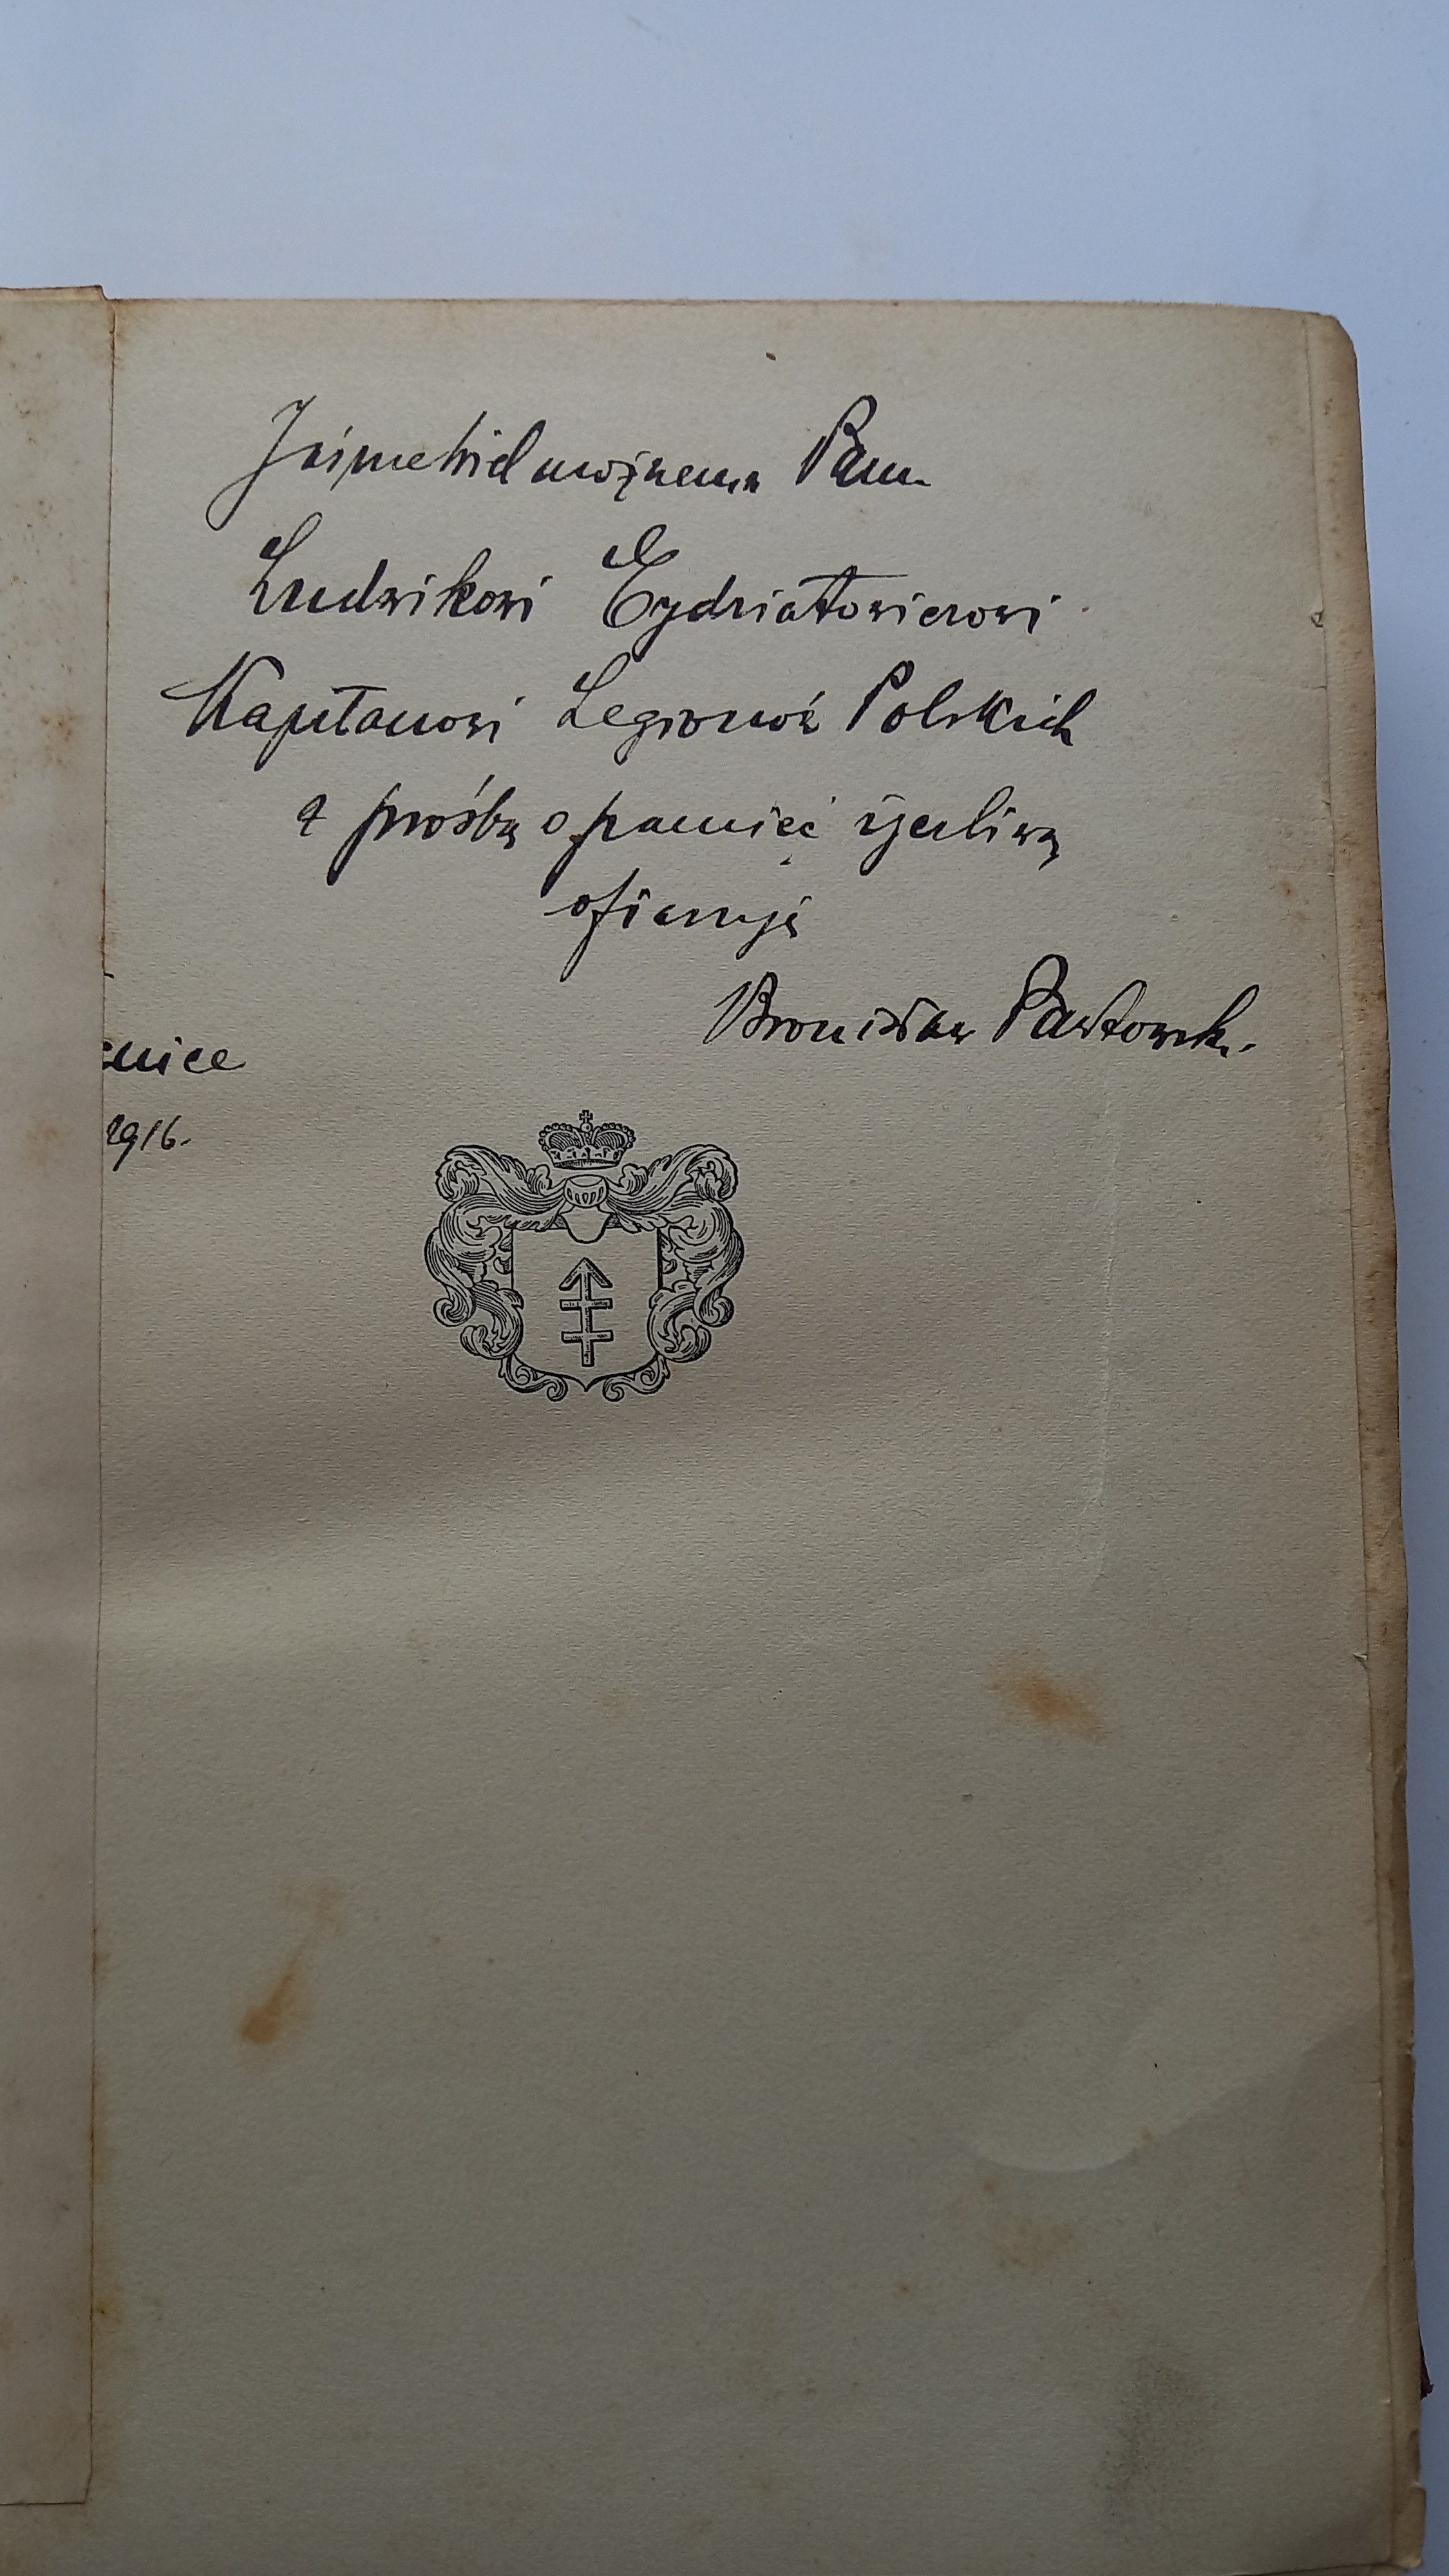 Jaśnie Wielmożnemu Panu
Ludwikowi Eydziatowiczowi
Kapitanowi Legionów Polskich
z prośbą o pamięć życzliwą
ofiaruję
Bronisław Pawłowski.
1916.